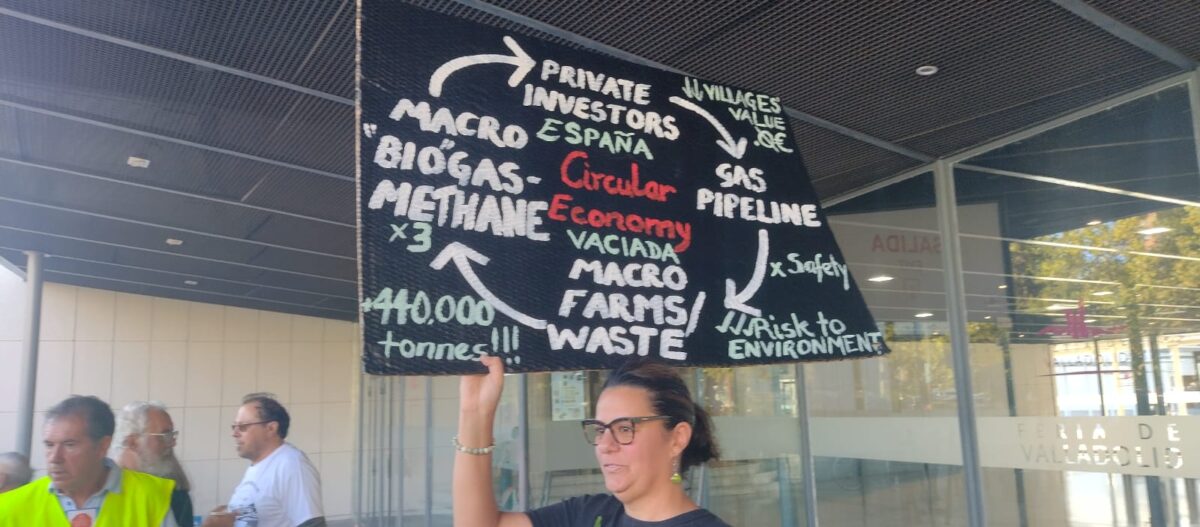 PRIVATE
INVESTORS
ESPAÑA
↓↓ VILLAGES
VALUE
.0€
MACRO
"BIO"GAS-
METHANE
x3
Circular
Economy
VACIADA
GAS
PIPELINE
x Safety
MACRO
FARMS/
WASTE
+440.000
tonnes!!!
↓↓↓Risk to
ENVIRONMENT
SALIDA
FERIA DE
VALLADOLID